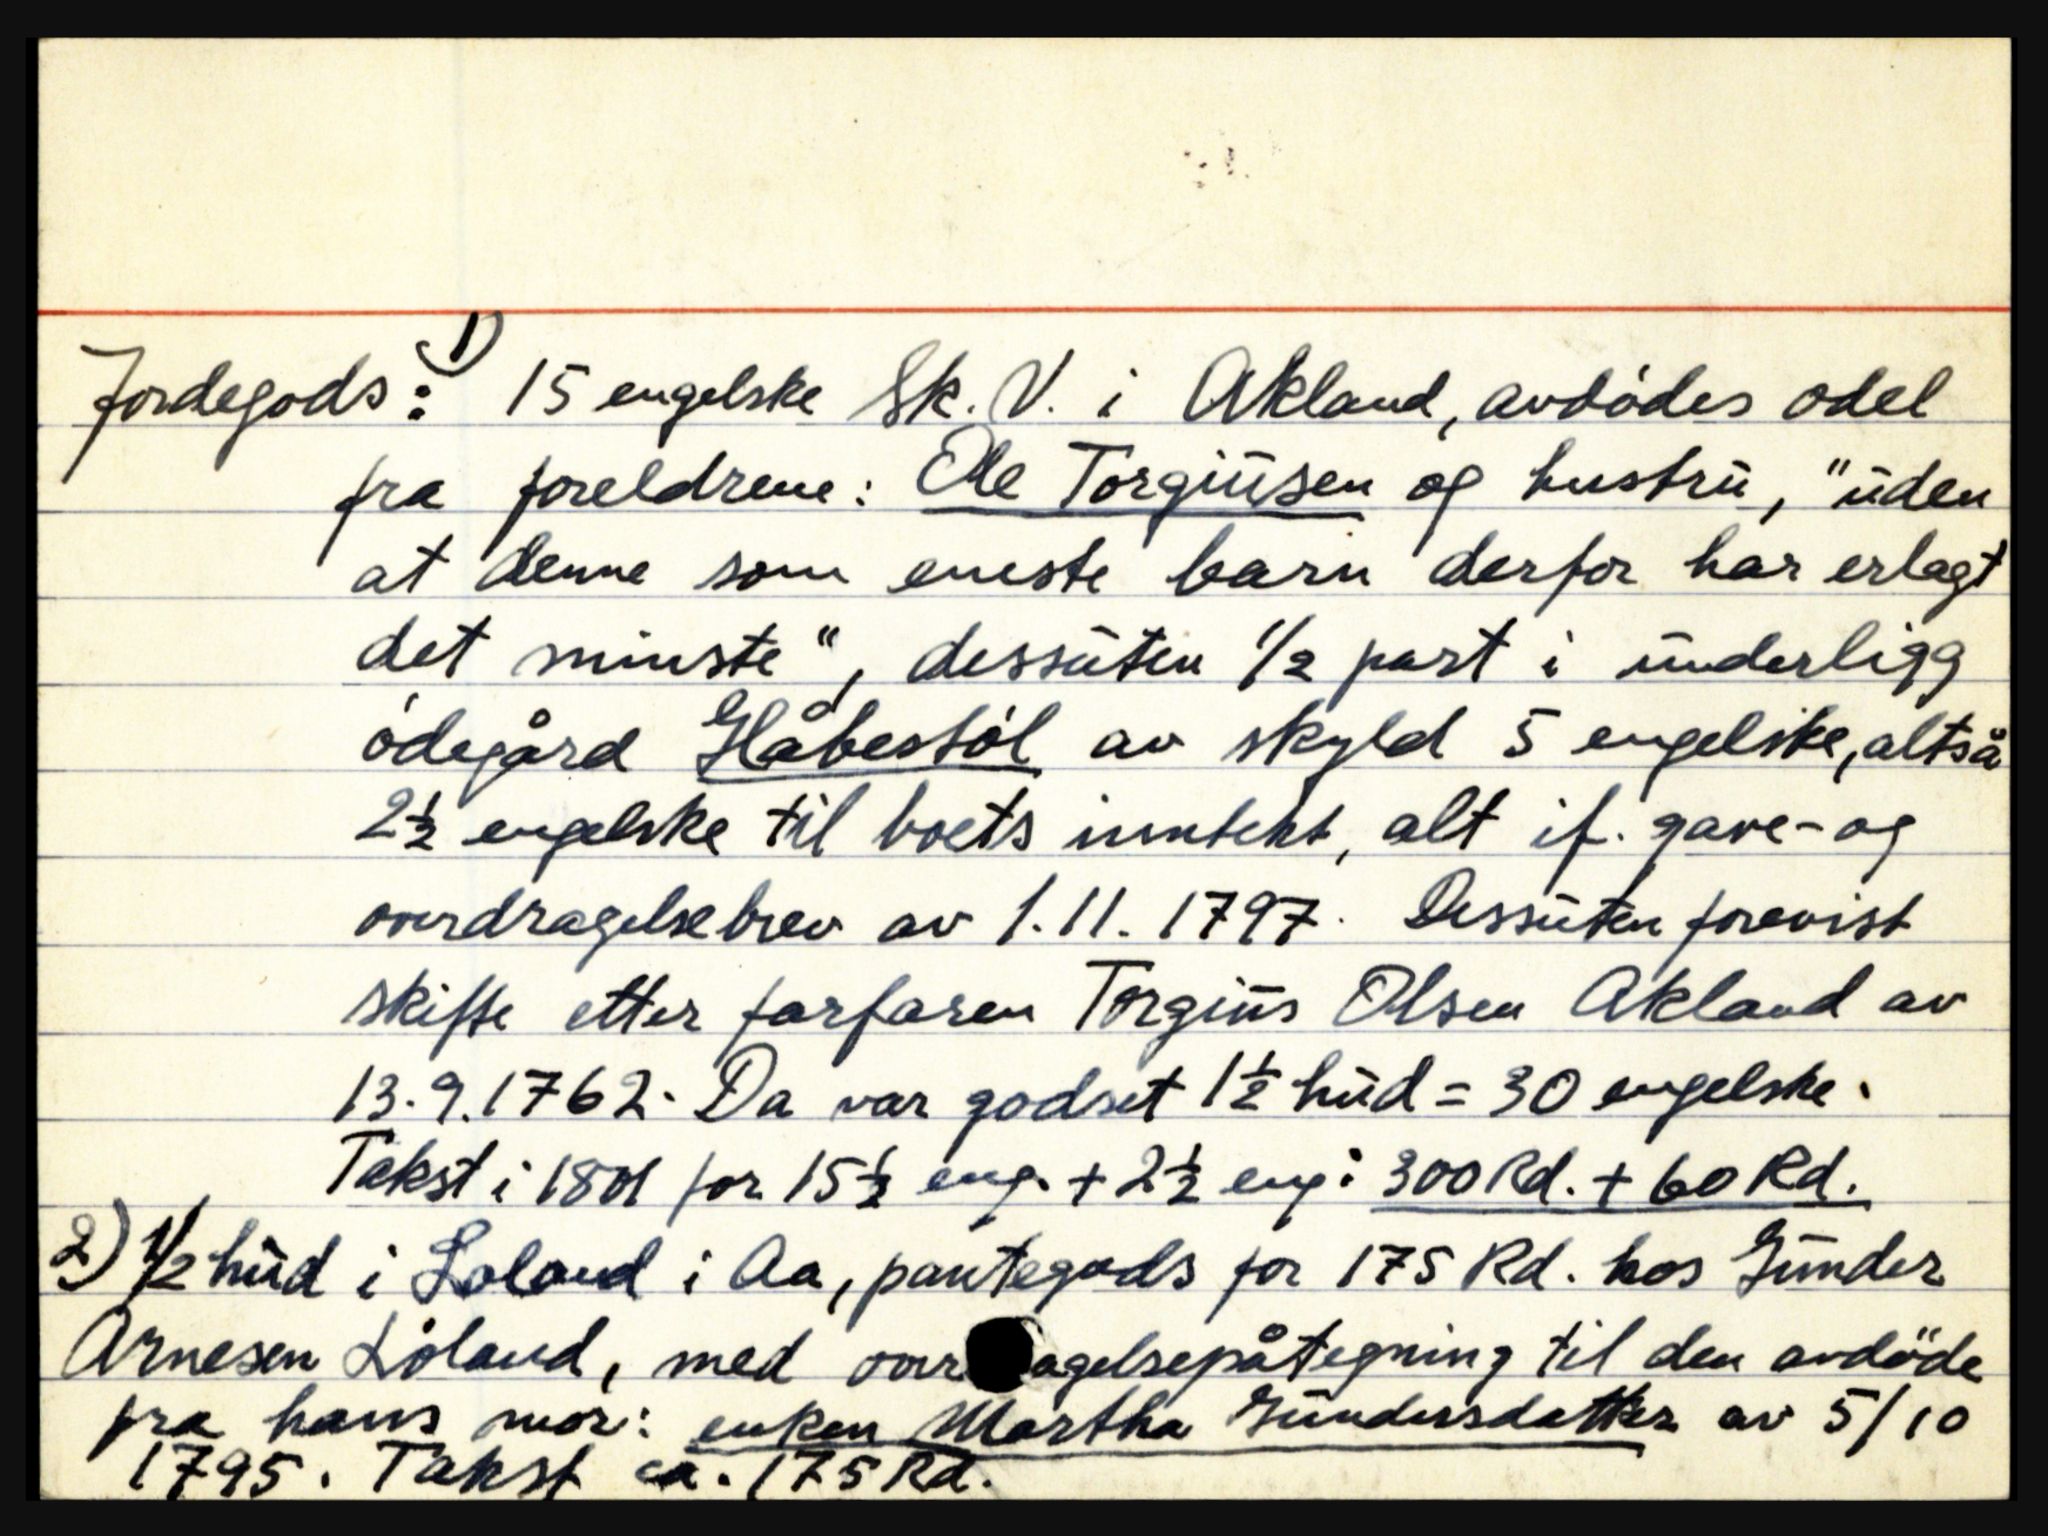 Jordegods: 1) 15 engelske Sk. V. i Akland, avdödes odel
fra foreldrene: Ole Torgiusen og hustru, "uden
at denne som eneste barn derfor har erlagt
det minste", dessuten 1/2 part i underligg
ödegård Håbestöl av skyld 5 engelske, altså
2½ engelske til boets inntekt, alt if. gave- og
overdragelsebrev av 1.11.1797. Dessuten forevist
skifte etter farfaren Torgius Olsen Akland av
13.9.1762. Da var godset 1½ hud = 30 engelske.
Takst i 1801 for 15½ eng. + 2½ eng: 300 Rd. + 60 Rd.
2) 1/2 hud i Loland i Aa, pantegods for 175 Rd. hos Gunder
Arnesen Löland, med over agelsepåtegning til den avdöde
fra hans mor: enken Martha Gundersdatter av 5/10
1795. Takst ca. 175 Rd.